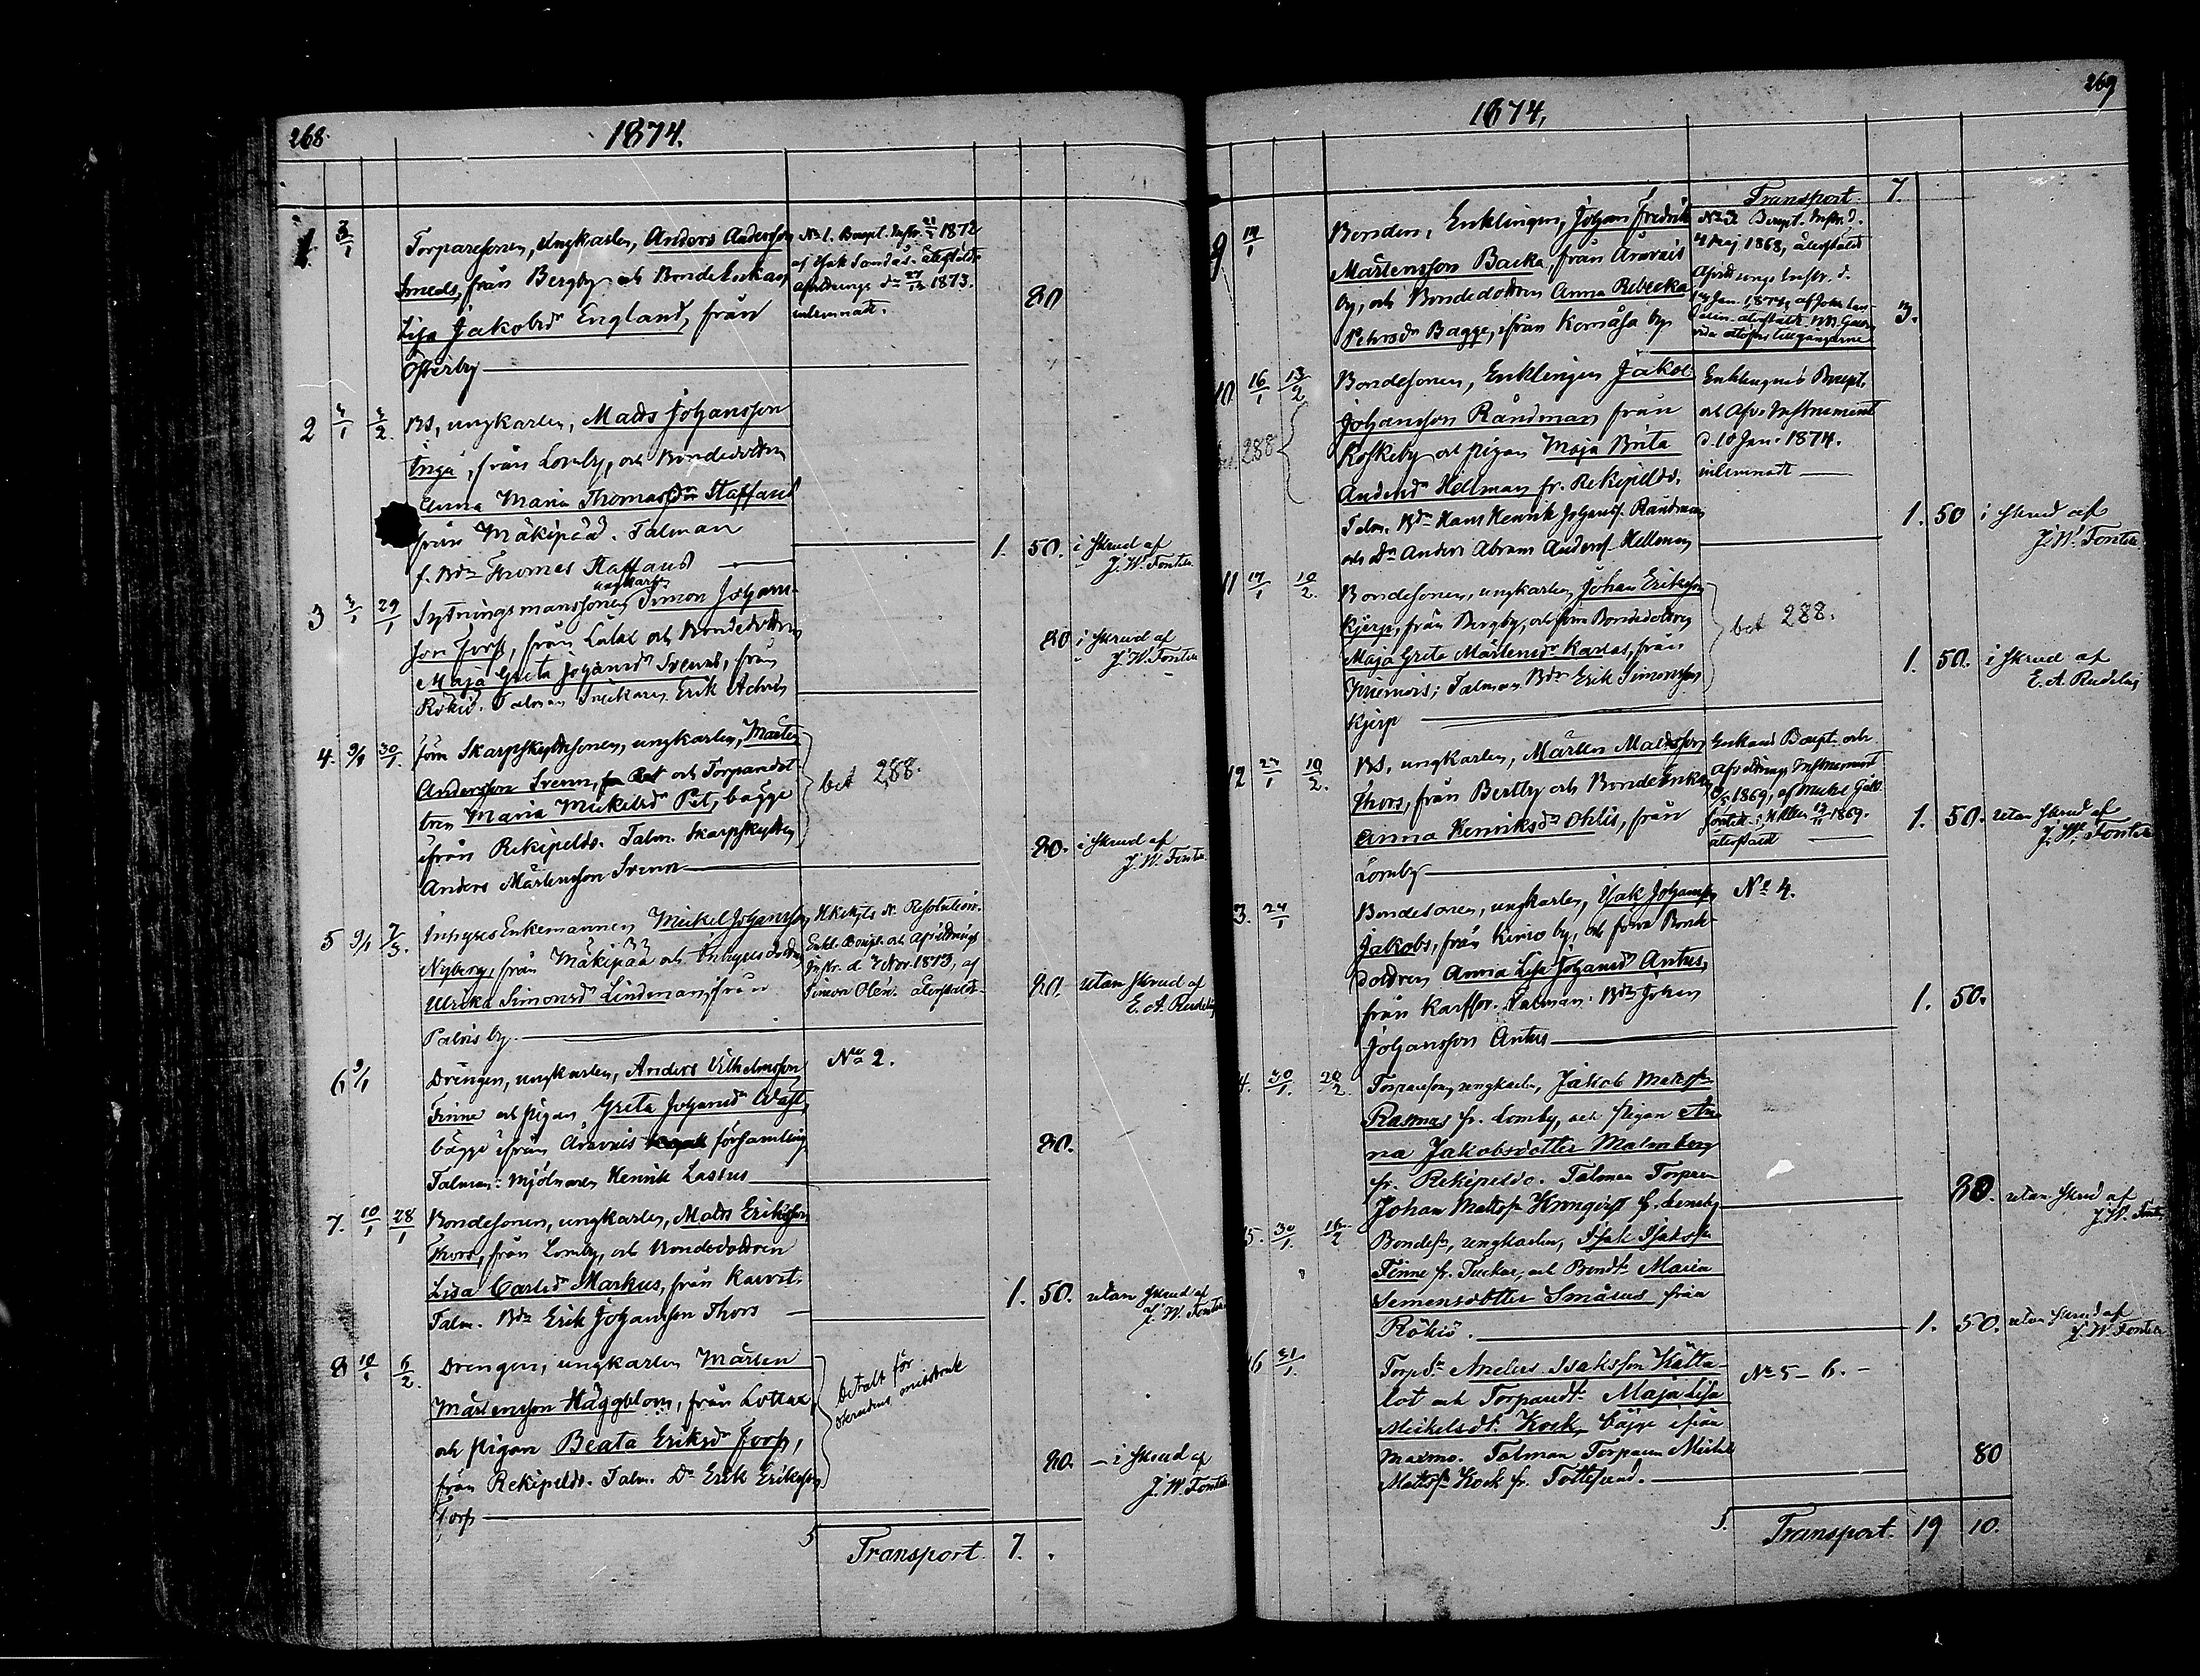 268.
1874.
1 3/1 Torparesonen, ungkarlen, Anders Andersson
Smeds, från Bergby och Bonde Enkan
Lisa Jakobsdr England, från
Österby
No 1. Boupt. Instr. 1872
af Isak Sandås. återstälde
afvittrings do 1873.
inlemnadt.
80
2 4/1 4/2. BS, ungkarlen, Mads Johansson
Inga, från Lomby, och Bondedottren
Anna Maria Thomasdr Staffans
från Mäkipää. Talman
f. Bdn Thomas Staffans
1. 50. i skrud af
J. W. Fontén
3 4/1 29/1 Sytningsmanssonen ungkarlen Simon Johans-
son Torp, från Lålax och Bondedottren
Maja Greta Johansdr Svens, från
Rökiö. Talman Snickaren Erik
80 i skrud af
J. W. Fontén
4. 9/1 30/1. förre Skarpskyttesonen, ungkarlen, Mårten
Andersson Svenn, och Torparedot-
tren Maria Mickelsdr Pet, bägge
ifrån Rekipeldo. Talm. Skarpskytten
Anders Mårtensson Svenn
bet 288.
80. i skrud af
J. W. Fontén
5 9/1 7/3. Inhyses Enkemannen Mickel Johansson
Nyberg, från Mäkipää och Inhysesdottren
Ulrika Simonsdr Lindeman, från
Palvis by.
Resolution.
Enkl. Boupt. och Afvittrings
Instr. d. 7 Nov. 1873, af
Simon Olén. återstäldt
80. utan skrud af
E. A. Rudelius
6 9/1 Drengen, ungkarlen, Anders Vilhelmsson
Finne och pigan Greta Johansdr Wast,
bägge ifrån Aravais församling
Talman: Mjölnaren Henrik Lassus
No 2.
80.
7. 10/1 28/1 Bondesonen, ungkarlen, Mads Eriksson
Thors, från Lomby, och Bondedottren
Lisa Carlsdr Markus, från Karvat.
Talm. Bdn Erik Johansson Thors
1. 50. utan skrud af
J. W. Fontén
8 10/1 6/2. Drengen, ungkarlen Mårten
Mårtensson Häggblom, från Lottlax,
och Pigan Beata Eriksdr Torp,
från Rekipeldo. Talm. Dn Erik Eriksson
Torp
betalt för
skrudens missbruk
80. i skrud af
J. W. Fontén
5 Transport 7.
269
1874.
Transport 7.
9 14/1 Bonden, Enklingen, Johan Fredrik
Mårtensson Backa, från Aravais
by, och Bondedottren Anna Rebecka
Petersdr Bagge, ifrån Komåsa by.
No 3 Boupt. Instr. d.
4 Maj 1868, återstäld
Afvittrings Instr. d.
Jan. 1874, af Joh.
3.
10 16/1 13/2 Bondesonen, Enklingen Jakob
Johansson Råndman från
Koskeby och pigan Maja Brita
Andersdr Hellman fr. Rekipeldo.
Talm. Bdn Hans Henrik Johanss. Råndman
och Dn Anders Abram Anderss. Hellman
bet 288
Enklingens Boupt.
och Afv. Instrument
d. 10 Jan. 1874.
inlemnadt
1. 50 i skrud af
J. W. Fontén
11 17/1 10/2. Bondesonen, ungkarlen, Johan Eriksson
Kjerp, från Bergby, och förra Bondedottren
Maja Greta Mårtensdr Karlas, från
Miemois; Talman Bdn Erik Simonsson
Kjerp
bet 288.
1. 50. i skrud af
E. A. Rudelius
12 24/1 10/2. BS, ungkarlen, Mårten Madsson
Thors, från Bertby och Bonde Enkan
Anna Henriksdr Ohlis, från
Lomby
Enkans Boupt. och
Afvittrings Instrument
1869, af Mickel
1869.
återstäld
1. 50. utan skrud af
J. W. Fontén
13. 24/1 Bondesonen, ungkarlen, Isak Johansson
Jakobs, från Kimo by, och förra Bonde-
dottren Anna Lisa Johansdr Antus,
från Karfsor. Talman: Bdn Johan
Johansson Antus
No 4.
1. 50.
14. 30/1. 20/2. Torpareson, ungkarlen, Jakob Matsson
Rasmas fr. Lomby, och pigan An-
na Jakobsdotter Malmberg
fr. Rekipeldo. Talman Torparen
Johan Matss. Kronqvist fr. Lomby
80. utan skrud af
J. W. Fontén
15. 30/1. 16/2 Bondesn, ungkarlen, Isak Isakssn
Finne fr. Tuckur, och Bondt. Maria
Simonsdotter Småus från
Rökiö.
1. 50. utan skrud af
J. W. Fontén
16 31/1. Torp.Sn Anders Isaksson Källa-
lot och Torparedt. Maja Lisa
Mickelsdt. Kock, bägge ifrån
Maxmo. Talman Torparen Mickel
Matss. Kock fr. Tottesund.
No 5–6.
80
5. Transport. 19 10.